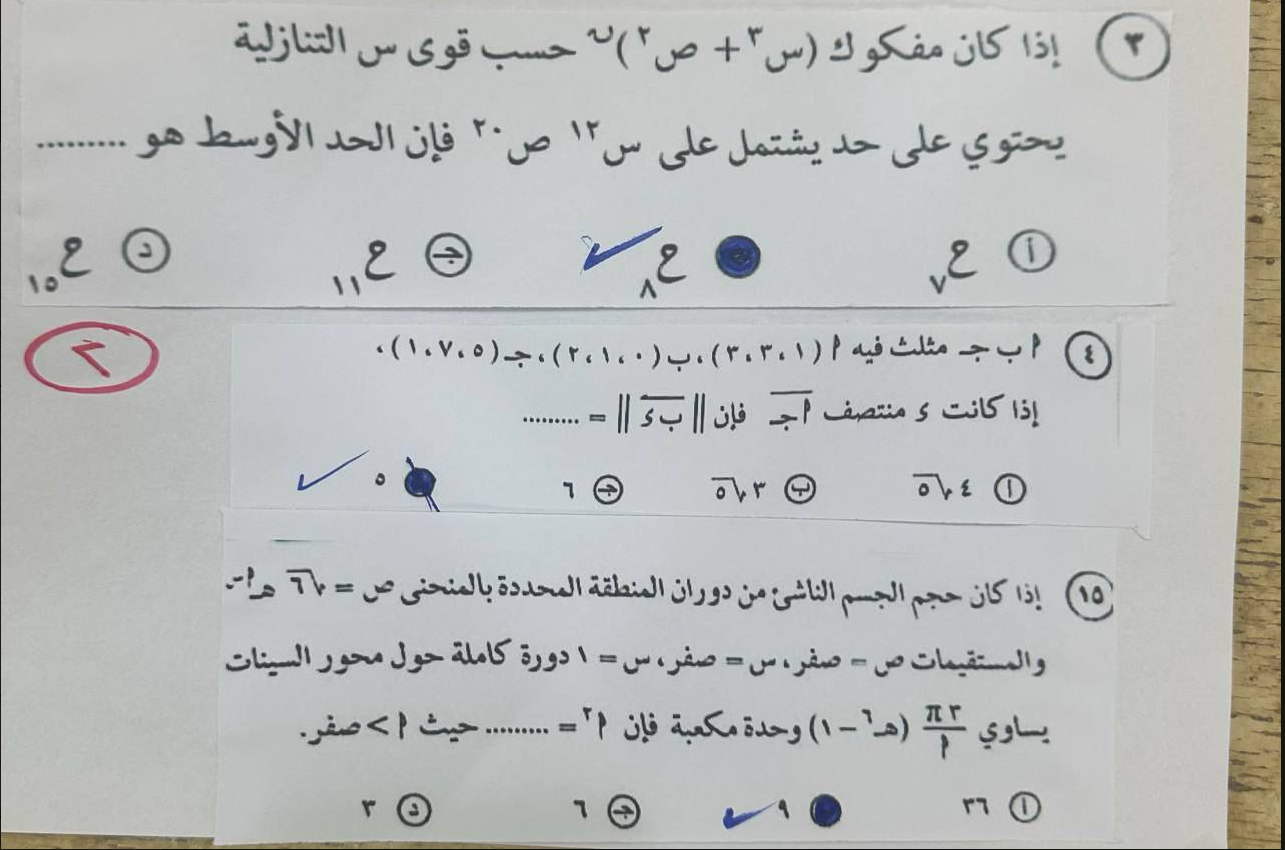 ٣ إذا كان مفكوك (س٣ + ص٢)ن حسب قوى س التنازلية
يحتوي على حد يشتمل على س١٢ ص٢٠ فإن الحد الأوسط هو .........
أ ح٧ ح٨ جـ ح١١ د ح١٥
٢
٤ ا ب جـ مثلث فيه ا (١، ٣، ٣)، ب (٠، ١، ٢)، جـ (٥، ٧، ١)،
إذا كانت ء منتصف اجـ فإن || ب ء || = .........
أ ٤√٥ ب ٣√٥ جـ ٦ ٥
١٥ إذا كان حجم الجسم الناشئ من دوران المنطقة المحددة بالمنحنى ص = √٦ هـاس
والمستقيمات ص = صفر، س = صفر، س = ١ دورة كاملة حول محور السينات
يساوي ٣π/ا (هـ٦ - ١) وحدة مكعبة فإن ا٢ = ......... حيث ا > صفر.
أ ٣٦ ٩ جـ ٦ د ٣